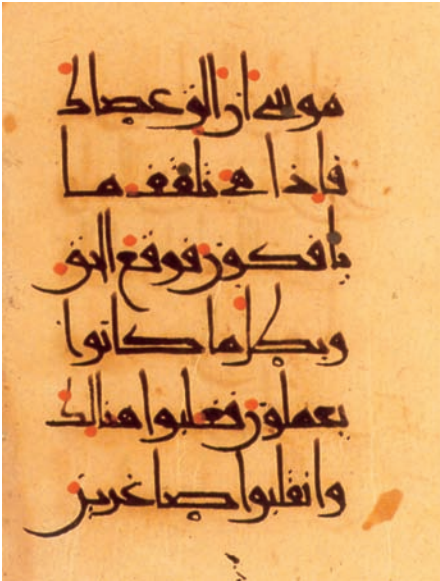 موسى ان الق عصاك
فاذا هي تلقف ما
يافكون فوقع الحق
وبطل ما كانوا
يعملون فغلبوا هنالك
وانقلبوا صاغرين